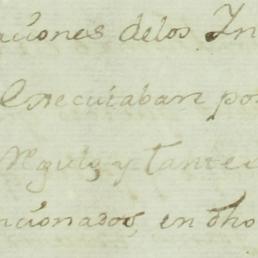 aciones delos In
Executaban po
y tante
ncionados, en dho